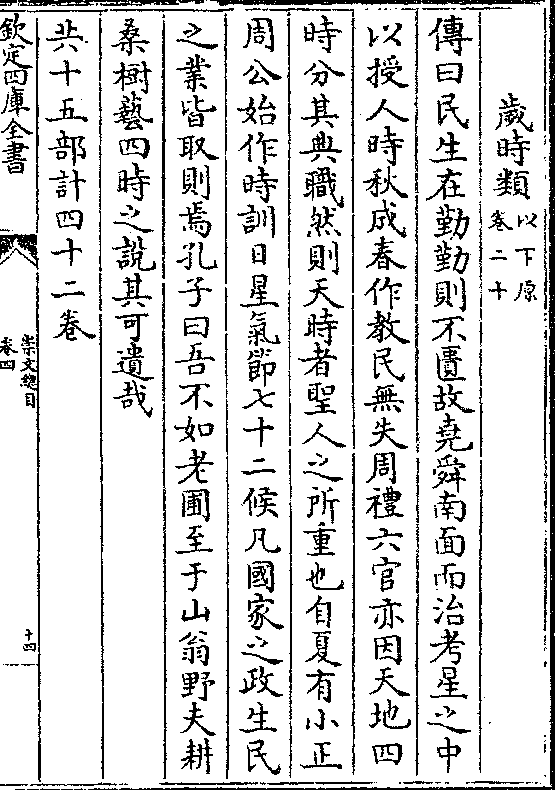 歲時類以下原卷二十
傳曰民生在勤勤則不匱故堯舜南面而治考星之中
以授人時秋成春作教民無失周禮六官亦因天地四
時分其典職然則天時者聖人之所重也自夏有小正
周公始作時訓日星氣節七十二候凡國家之政生民
之業皆取則焉孔子曰吾不如老圃至于山翁野夫耕
桑樹藝四時之說其可遺哉
共十五部計四十二卷
欽定四庫全書
崇文總目
卷四
十四